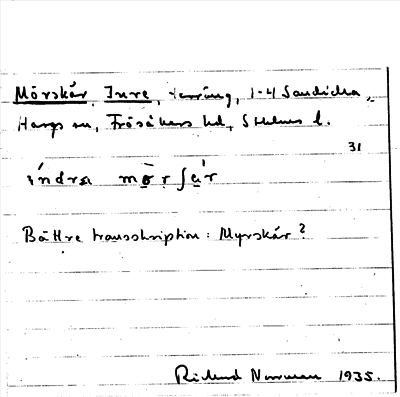 Mörskär, Inre, terräng, 1-4 Sandika,
Hargs sn, Frösåkers hd, Sthlms l.
31
índra mø̀rʃæ̀r
Bättre transskription: Myrskär?
Rickard Norman 1935.